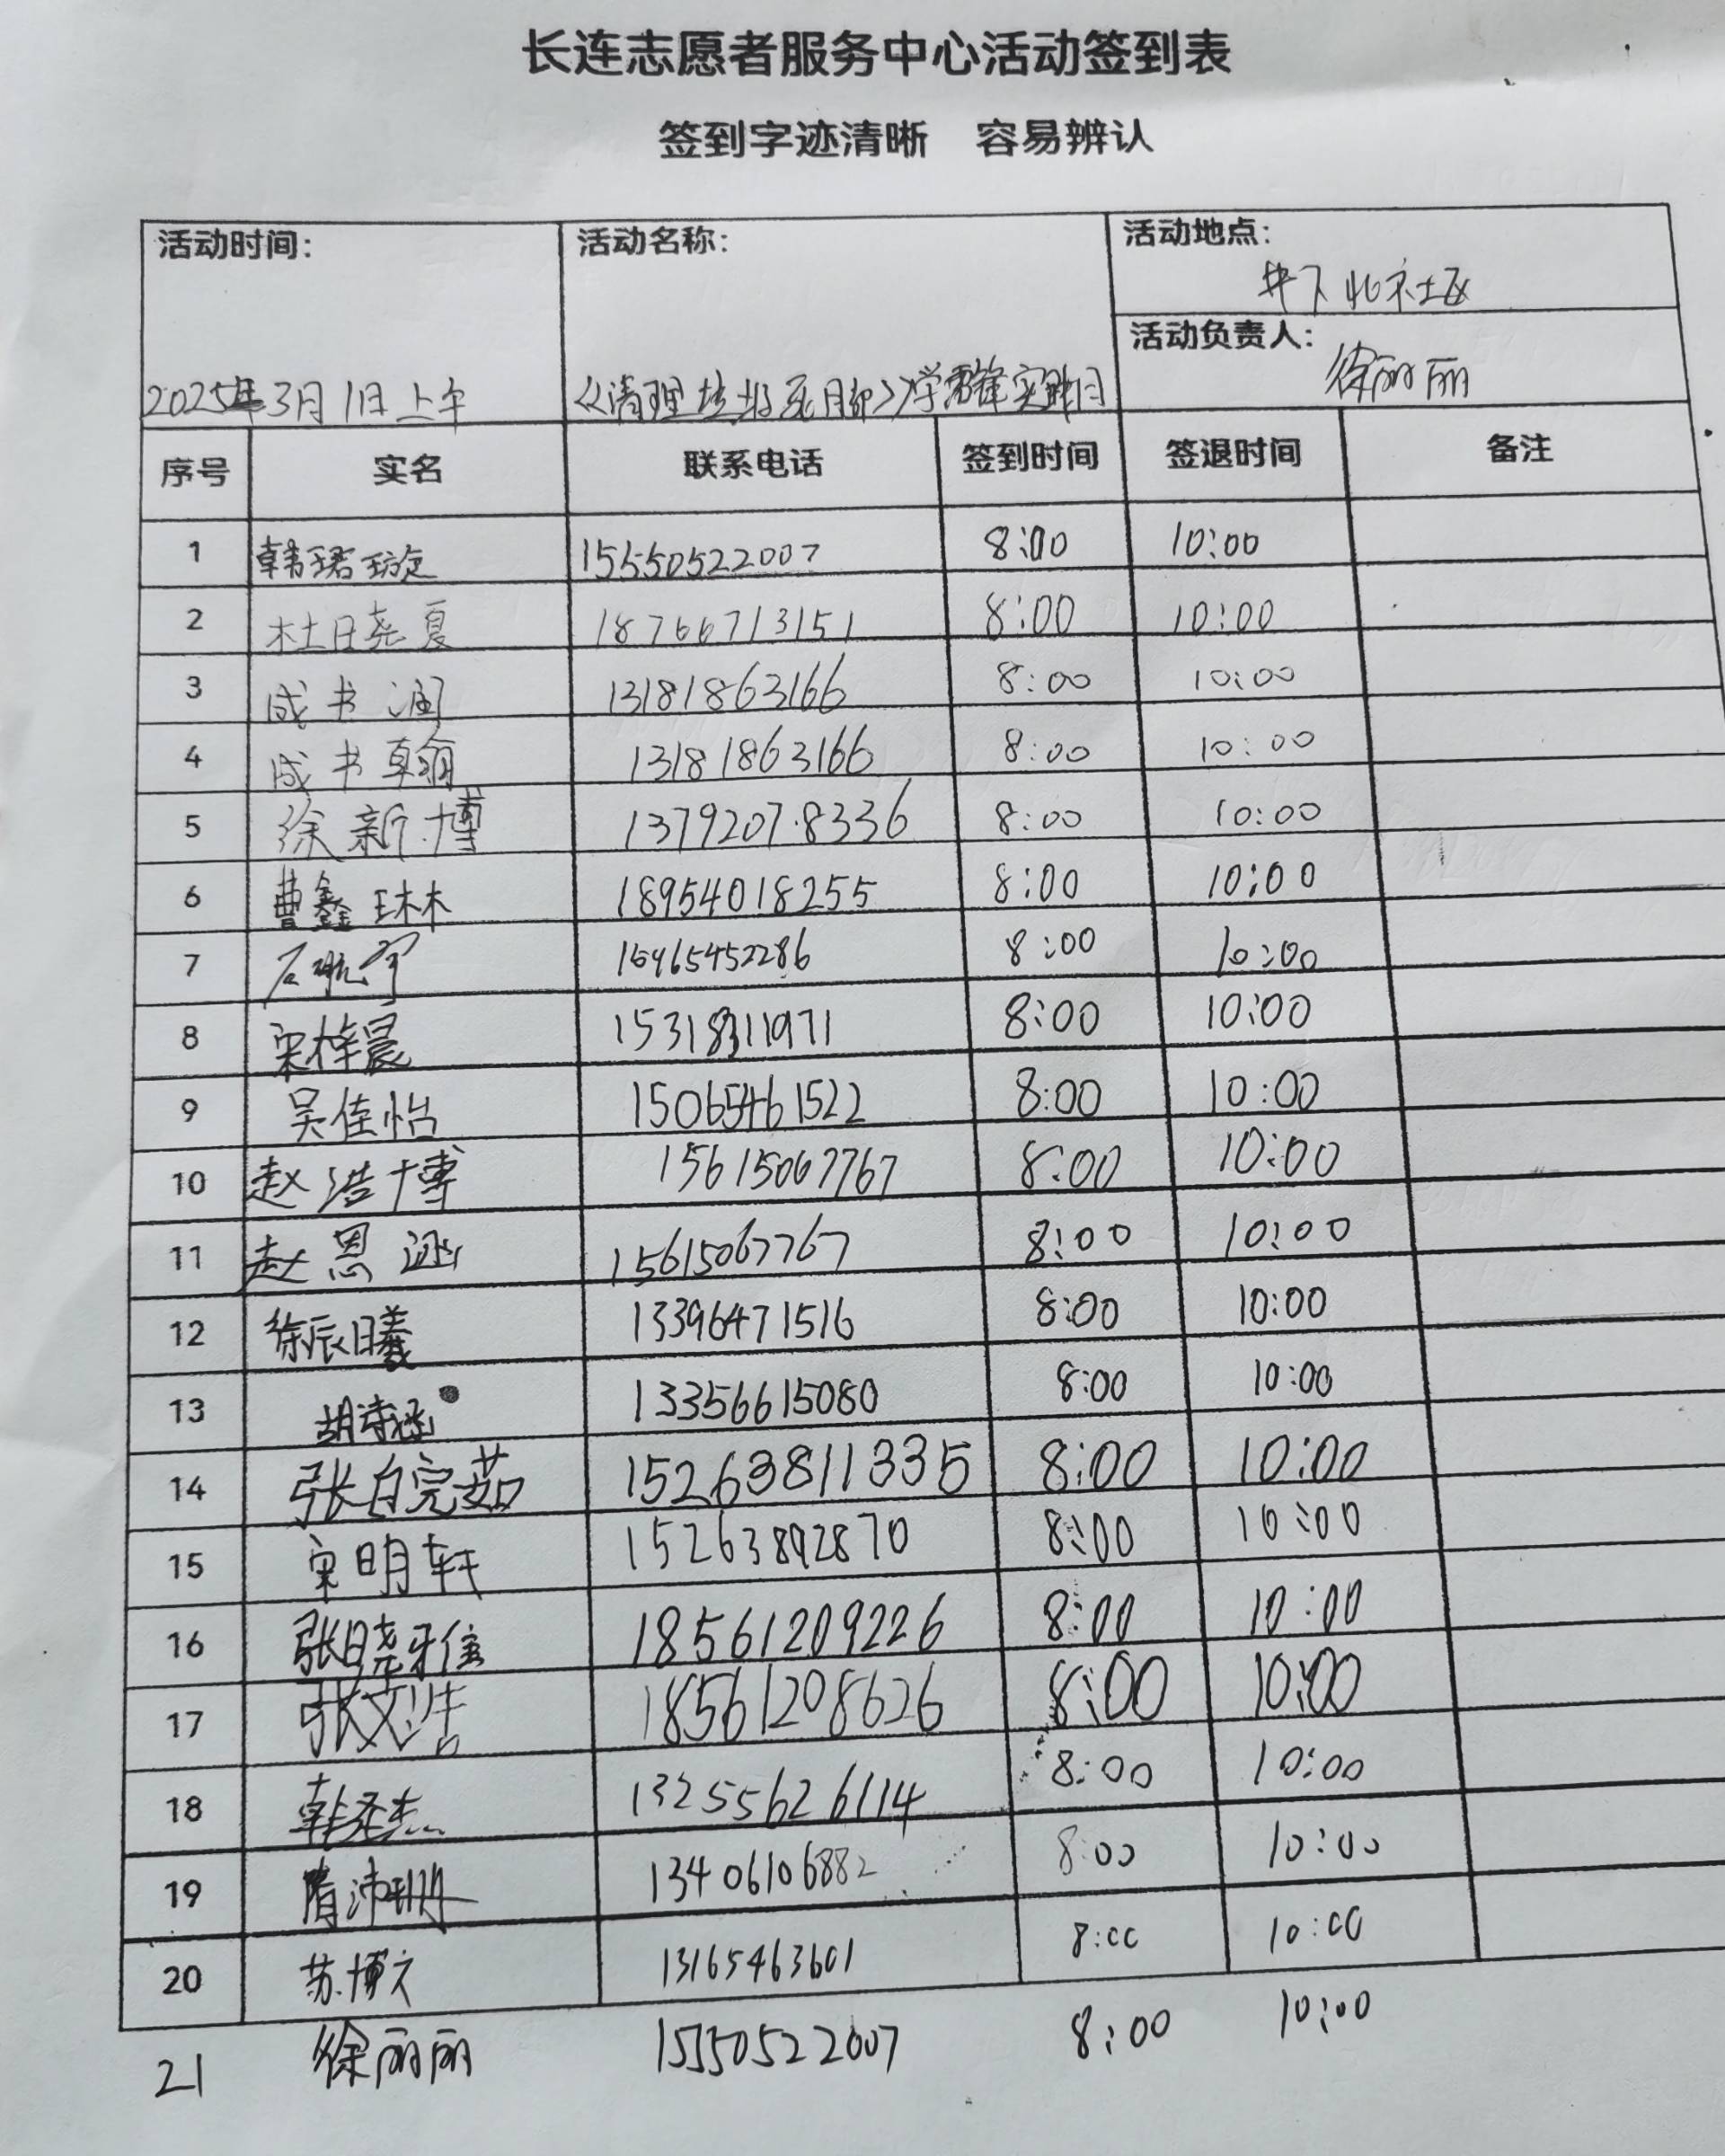 长连志愿者服务中心活动签到表
签到字迹清晰 容易辨认
活动时间: 活动名称: 活动地点:
井下北社区
活动负责人:
徐丽丽
2025年3月1日上午 《清理垃圾死角》学雷锋实践日
序号 实名 联系电话 签到时间 签退时间 备注
1 韩珺璇 15550522007 8:00 10:00
2 杜晓夏 18766713151 8:00 10:00
3 成书润 13181863166 8:00 10:00
4 成书翰 13181863166 8:00 10:00
5 徐新博 13792078336 8:00 10:00
6 曹鑫琳 18954018255 8:00 10:00
7 石航宇 15965452286 8:00 10:00
8 宋梓晨 15318311971 8:00 10:00
9 吴佳怡 15065461522 8:00 10:00
10 赵浩博 15615067767 8:00 10:00
11 赵恩涵 15615067767 8:00 10:00
12 徐辰曦 13396471516 8:00 10:00
13 胡诗涵 13356615080 8:00 10:00
14 张白完茹 15263811335 8:00 10:00
15 宋明轩 15263892870 8:00 10:00
16 张晓雅 18561209226 8:00 10:00
17 张文浩 18561208626 8:00 10:00
18 韩圣杰 13255626114 8:00 10:00
19 隋沛珊 13406106882 8:00 10:00
20 苏博文 13165463601 8:00 10:00
21 徐丽丽 15550522007 8:00 10:00